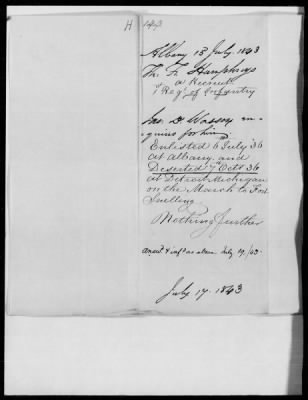 H 143
Albany 13 July. 1843
Th. F. Humphreys
a Recruit
Regt of Infantry
Jas. D Wasson en-
quires for him
Enlisted 6 July '36
at Albany, and
Deserted 7th Octr 36
at Detroit Michigan
on the March to Fort
Snelling
Nothing further
Answd & infd as above July 19/43.
July 17. 1843